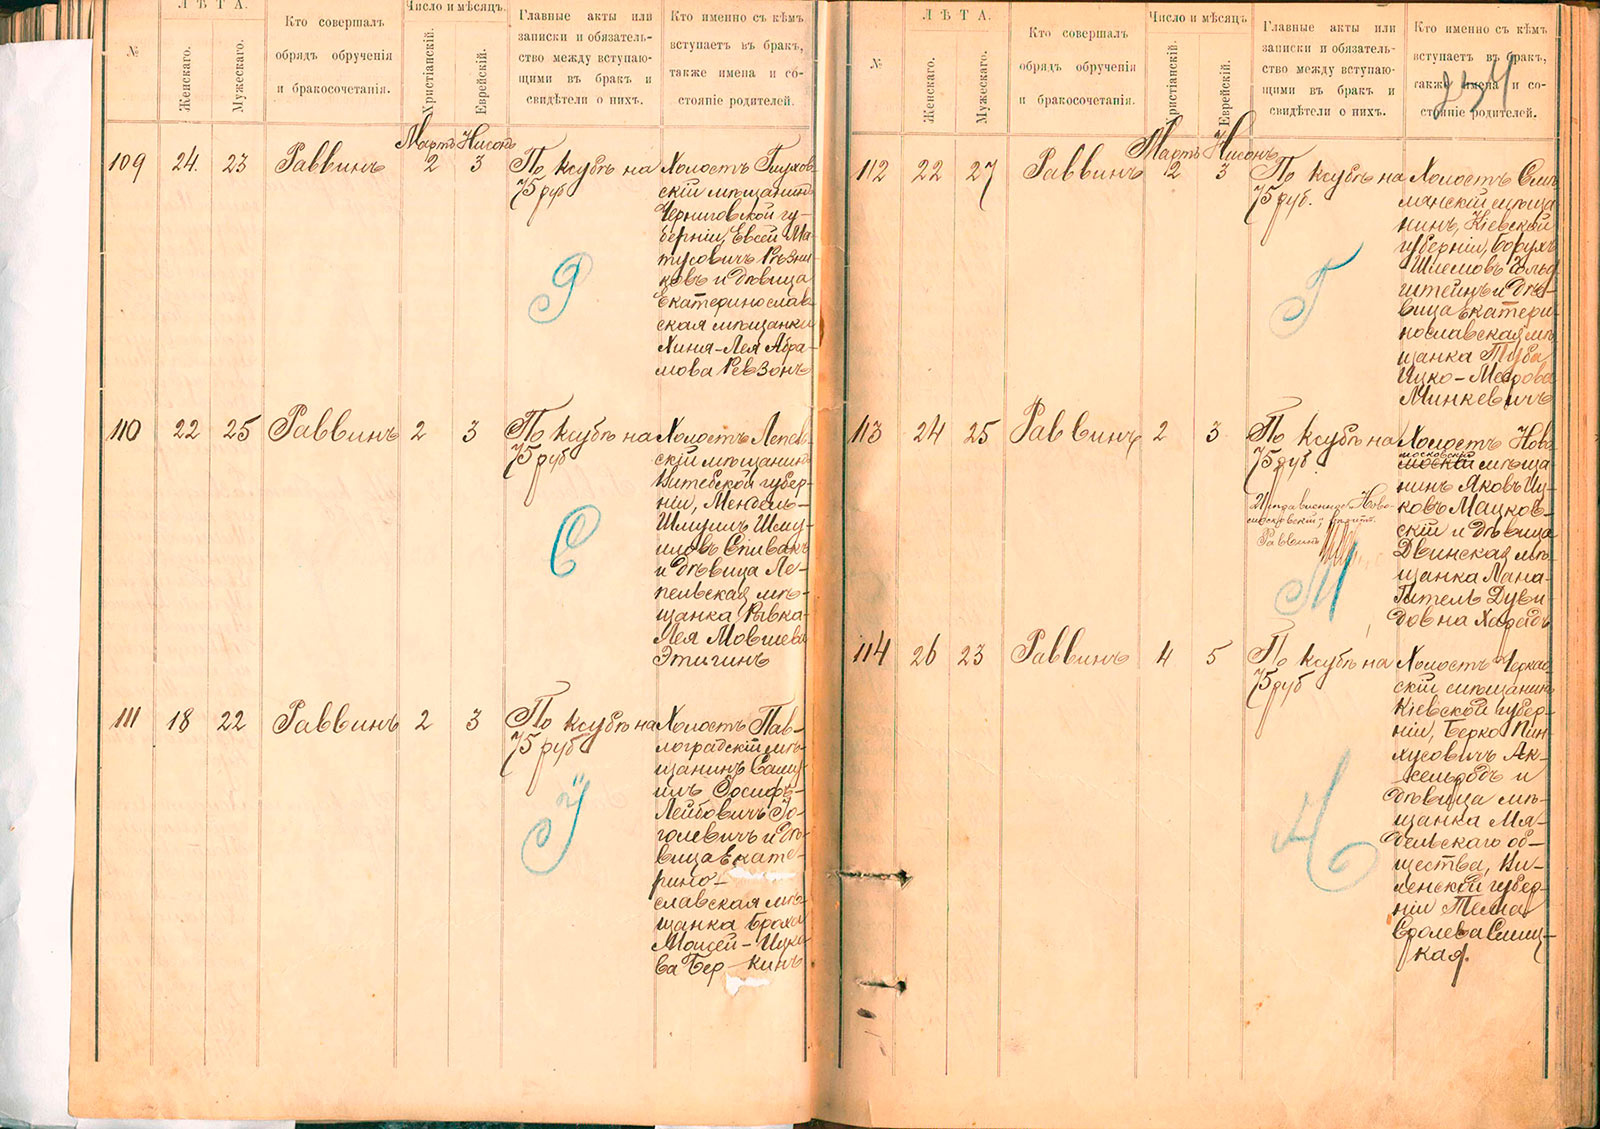 Л Ѣ Т А.
№
Женскаго.
Мужескаго.
Кто совершалъ
обрядъ обрученія
и бракосочетанія.
Число и мѣсяцъ.
Христіанскій.
Еврейскій.
Главные акты или
записки и обязатель-
ство между вступаю-
щими въ бракъ и
свидѣтели о нихъ.
Кто именно съ кѣмъ
вступаетъ въ бракъ,
также имена и со-
стояніе родителей.
Мартъ Нисонъ
109 24. 23 Раввинъ 2 3
По ксубѣ на
75 руб
Холостъ Глухов-
скій мѣщанинъ
Черниговской гу-
берніи, Евсей Ма-
тусовичъ Рѣзни-
ковъ и дѣвица
Екатеринослав-
ская мѣщанка
Хиня-Лея Абра-
мова Ревзонъ
Р
110 22 25 Раввинъ 2 3
По ксубѣ на
75 руб
Холостъ Лепель-
скій мѣщанинъ
Витебской губер-
ніи, Мендель-
Шмуилъ Шму-
иловъ Спивакъ
и дѣвица Ле-
пельская мѣ-
щанка Рывка-
Лея Мовшева
Этигинъ
С
111 18 22 Раввинъ 2 3
По ксубѣ на
75 руб
Холостъ Пав-
лоградскій мѣ-
щанинъ Саму-
илъ Іосифъ-
Лейбовичъ Іо-
голевичъ и дѣ-
вица Екате-
рино-
славская мѣ-
щанка Броха
Моисей-Ицко-
ва Бер-кинъ
Й
234
Л Ѣ Т А.
№
Женскаго.
Мужескаго.
Кто совершалъ
обрядъ обрученія
и бракосочетанія.
Число и мѣсяцъ.
Христіанскій.
Еврейскій.
Главные акты или
записки и обязатель-
ство между вступаю-
щими въ бракъ и
свидѣтели о нихъ.
Кто именно съ кѣмъ
вступаетъ въ бракъ,
также имена и со-
стояніе родителей.
Мартъ Нисонъ
112 22 27 Раввинъ 2 3
По ксубѣ на
75 руб.
Холостъ Смѣ-
лянскій мѣща-
нинъ, Кіевской
губерніи, Борухъ
Шлемовъ Гольд-
штейнъ и дѣ-
вица Екатери-
нославская мѣ-
щанка Туба
Ицко-Меерова
Минкевичъ
Г
113 24 25 Раввинъ 2 3
По ксубѣ на
75 руб.
Исправленное „Ново-
московскій“ вѣрить.
Раввинъ
Холостъ Ново-
московскій
мѣща-
нинъ Яковъ Иц-
ковъ Мацков-
скій и дѣвица
Двинская мѣ-
щанка Хана-
Гитель Дуви-
довна
М
114 26 23 Раввинъ 4 5
По ксубѣ на
75 руб
Холостъ Черкас-
скій мѣщанинъ
Кіевской губер-
ніи, Берко Пин-
хусовичъ Ак-
сельродъ и
дѣвица мѣ-
щанка Мя-
дельскаго об-
щества, Ви-
ленской губер-
ніи Тема
Сролева Слуц-
кая.